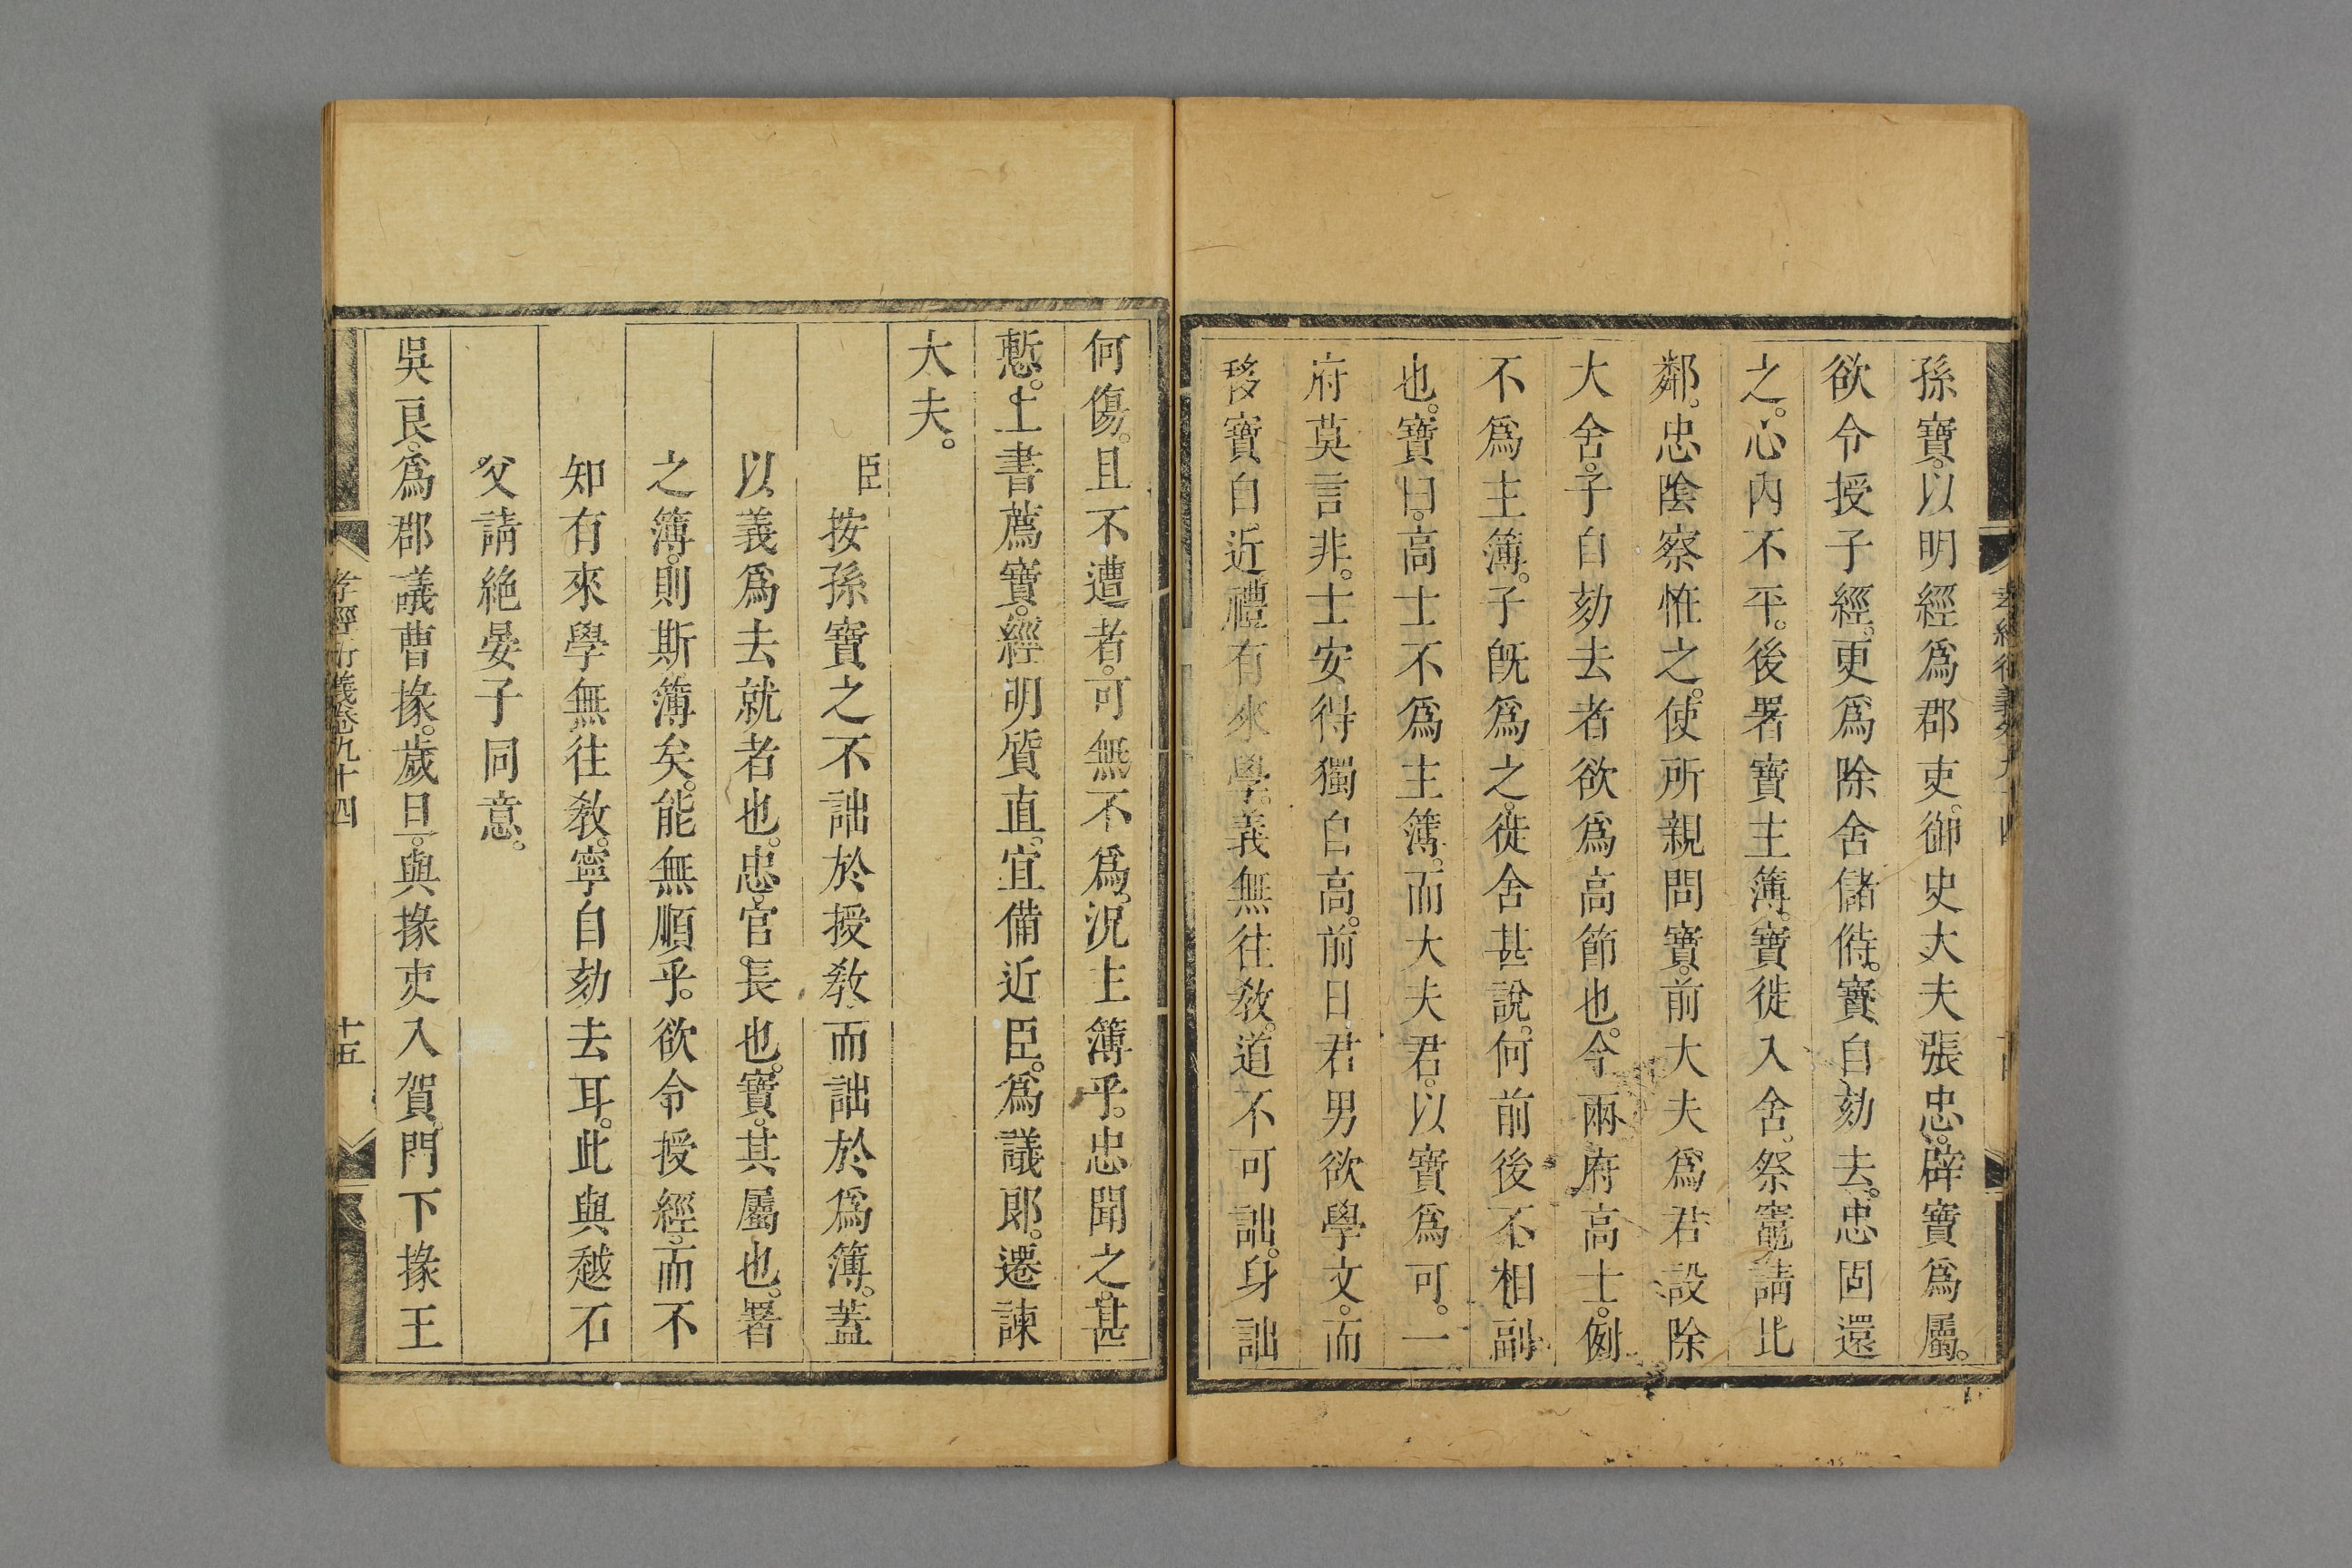 孫寶。以明經爲郡吏。御史大夫張忠。辟寶爲屬。
欲令授子經。更爲除舍儲偫。寶自劾去。忠固還
之。心內不平。後署寶主簿。寶徙入舍。祭竈請比
鄰。忠陰察怪之。使所親問寶。前大夫爲君設除
大舍。子自劾去者欲爲高節也。今兩府高士。例
不爲主簿。子旣爲之。徙舍甚說。何前後不相副
也。寶曰。高士不爲主簿。而大夫君。以寶爲可。一
府莫言非。士安得獨自高。前日君男欲學文。而
移寶自近。禮有來學。義無往敎。道不可詘。身詘
何傷。且不遭者。可無不爲。況主簿乎。忠聞之。甚
慙。上書薦寶。經明質直。宜備近臣。爲議郎。遷諫
大夫。
臣按孫寶之不詘於授敎而詘於爲簿。蓋
以義爲去就者也。忠。官長也。寶。其屬也。署
之簿。則斯簿矣。能無順乎。欲令授經。而不
知有來學無往敎。寧自劾去耳。此與越石
父請絶晏子同意。
吳良。爲郡議曹掾。歲旦。與掾吏入賀。門下掾王
孝經衍義卷九十四
十五